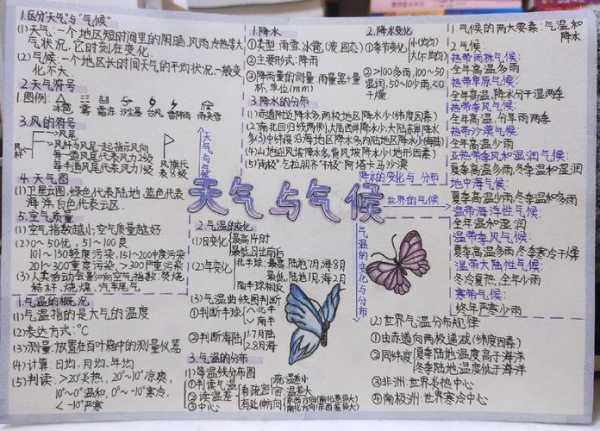 1.区分"天气"与"气候"
(1)天气:一个地区短时间里的阴晴,风雨,冷热等大
气状况,它时刻在变化
(2)气候:一个地区长时间天气的平均状况,一般变
化不大
2.天气符号
1图例:
3.风的符号
风尾
4.天气图
(1)卫星云图:绿色代表陆地,蓝色代表
海洋,白色代表云区
5.空气质量
(1)空气指数越小空气质量越好
(2)0~50优,51~100良
101~150轻度污染,151~200中度污染
201~300重度污染,>300严重污染
(3)人类
秸秆,烧煤,汽车尾气
1.气温的概况
(1)气温指的是大气的温度
(2)表达方式:℃
(3)测量:放置在百叶箱中的测量仪器
(4)计算:日均,月均,年均
(5)判读:>20°炎热,20°~10°凉爽,
10°~0°温和,0°~-10°寒冷,
<-10°严寒
天气与气候
1.降水
(1)类型:雨雪,冰雹(液,固态)
(2)主要形式:降雨
(3)降雨量的测量:雨量器+量
杯,单位(mm)
2.降水变化
(1)季节变化
3.降水的分布
(1)赤道附近降水多两极地区降水少(纬度因素)
(2)南北回归线两侧,大陆西岸降水少,大陆东岸降水
多(3)中纬度沿海地区降水多,内陆地区降水少(海陆)
(4)山地迎风坡降水多,背风坡降水小(地形因素)
降水的变化与分布
天气与气候
世界的气候
2.气温的变化
(1)日变化
最高
最低日出前后
(2)年变化
北半球
南半球相反
(3)气温曲线图判断
①判断半球
②判断海陆
3.气温的分布
(1)等温线分布图
①判读气温
②读温差
③中心
气温的变化与分布
(2)世界气温分布规律
①由赤道向两极递减(纬度因素)
②同纬度
夏季陆地温度高于海洋
冬季陆地温度低于海洋
③非洲:世界热中心
④南极洲:世界寒冷中心
1)气候的两大要素:气温和
降水
2气候
热带雨林气候:
全年高温多雨
热带草原气候:
全年高温,降水分干湿两季
热带季风气候:
全年高温,分旱雨两季
热带沙漠气候:
全年高温少雨
亚热带季风和湿润气候:
夏季高温多雨,冬季温和湿润
地中海气候:
夏季高温少雨,冬季温和多雨
温带海洋性气候:
全年温和湿润
温带季风气候:
夏季高温多雨,冬季寒冷干燥
温带大陆性气候:
冬冷夏热,全年少雨
寒带气候:
终年严寒少雨